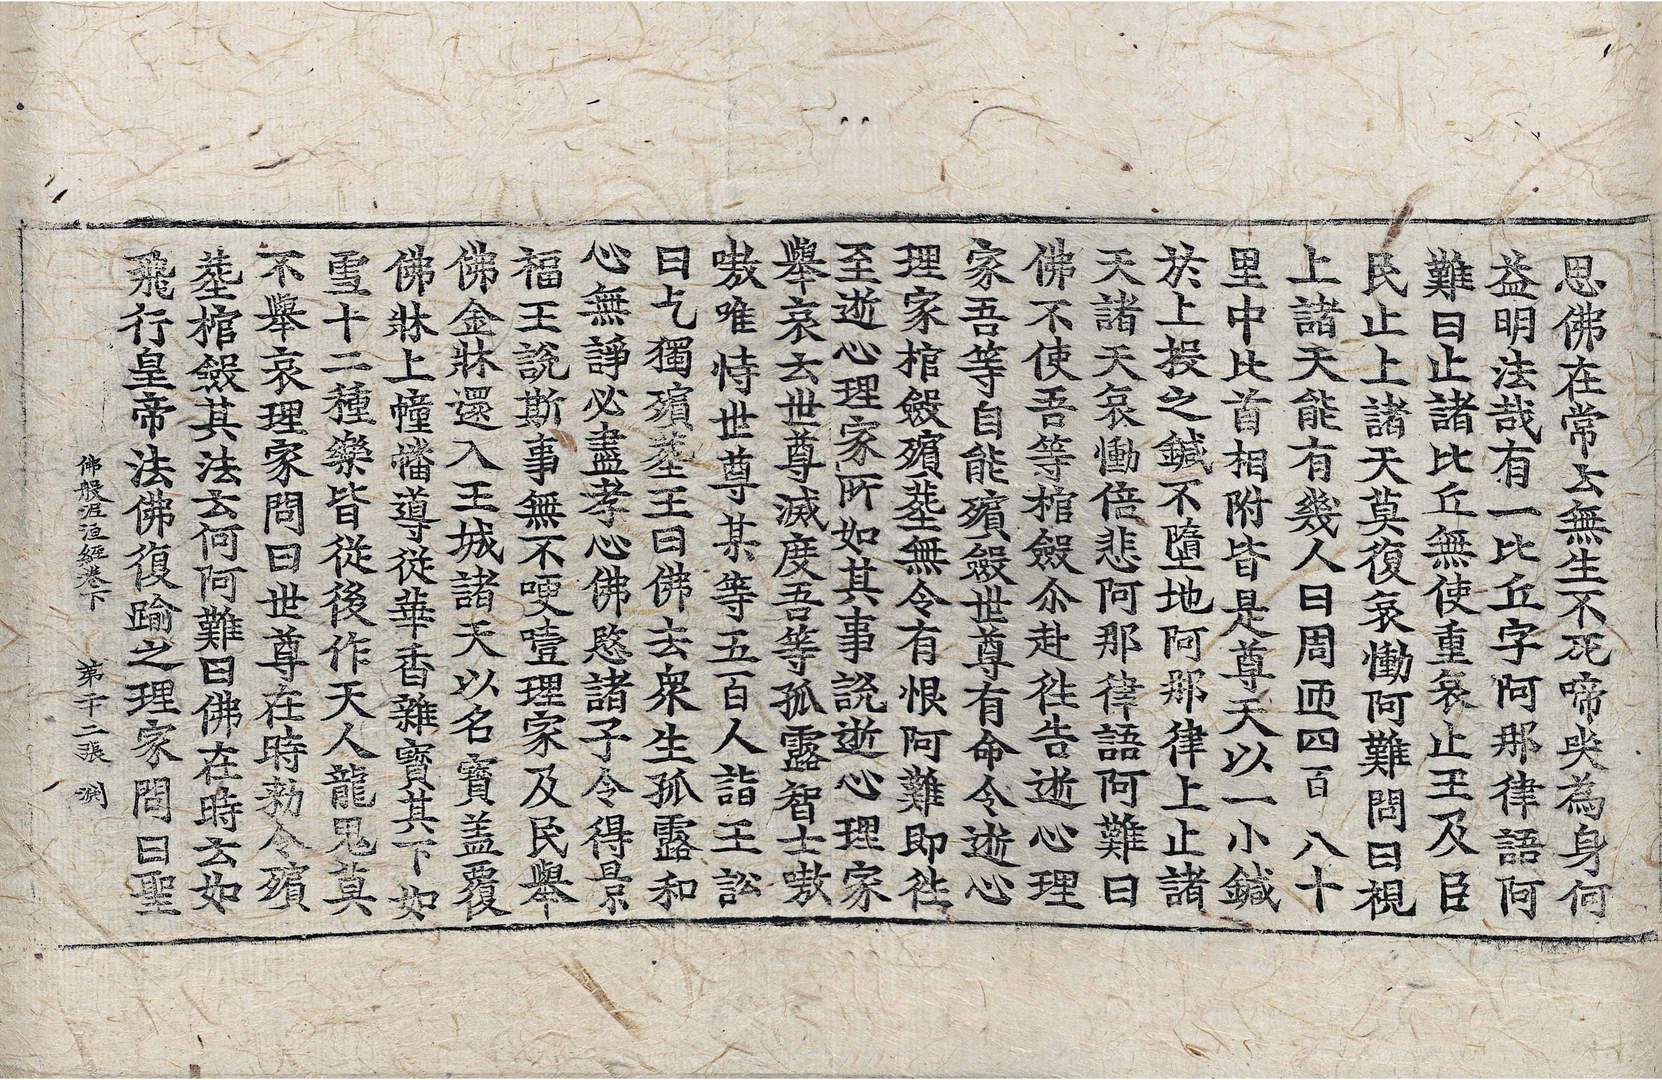 恩佛在常云無生不死啼哭為身何
益明法哉有一比丘字阿那律語阿
難曰止諸比丘無使重哀止王及臣
民止上諸天莫復哀慟阿難問曰視
上諸天能有幾人曰周匝四百八十
里中比首相附皆是尊天以一小鍼
於上投之鍼不墮地阿那律上止諸
天諸天哀慟倍悲阿那律語阿難曰
佛不使吾等棺斂尒赴徃告逝心理
家吾等自能殯斂世尊有命令逝心
理家棺斂殯塟無令有恨阿難即徃
至逝心理家所如其事說逝心理家
舉哀云世尊滅度吾等孤露智士嗷
嗷唯恃世尊某等五百人詣王訟
曰乞獨殯塟王曰佛去衆生孤露和
心無諍必盡孝心佛愍諸子令得景
福王說斯事無不哽噎理家及民舉
佛金牀還入王城諸天以名寶盖覆
佛牀上幢幡導從華香雜寶其下如
雪十二種樂皆從後作天人龍鬼莫
不舉哀理家問曰世尊在時勑令殯
塟棺斂其法云何阿難曰佛在時云如
飛行皇帝法佛復踰之理家問曰聖
佛般泥洹經卷下 第二十二張 渊